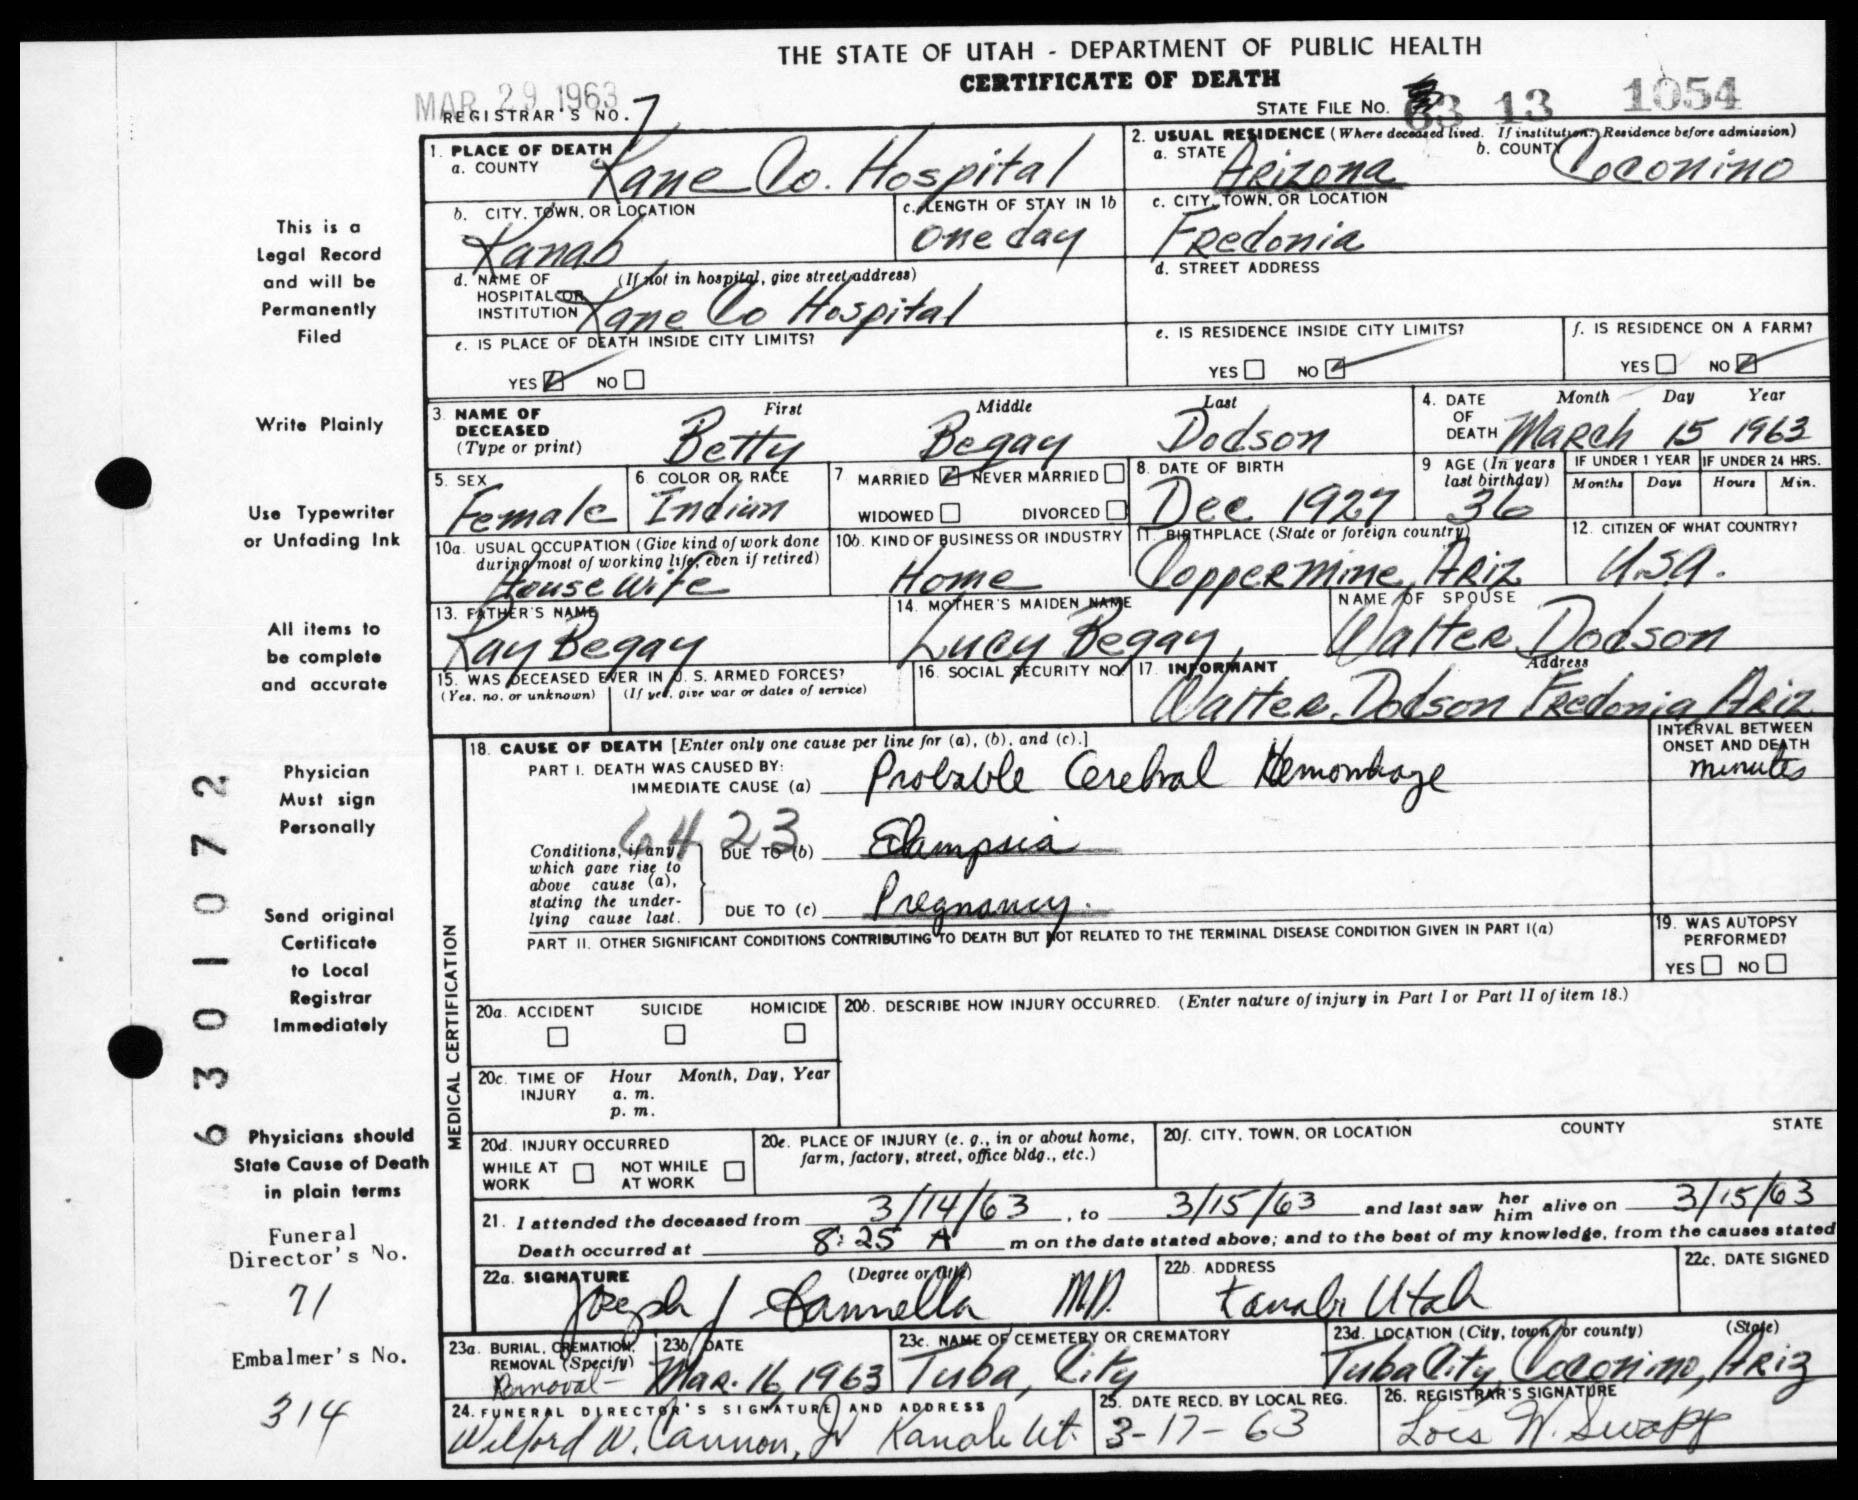 THE STATE OF UTAH - DEPARTMENT OF PUBLIC HEALTH
CERTIFICATE OF DEATH
MAR 29 1963
REGISTRAR'S NO. 7
STATE FILE NO. 63 13 1054
1. PLACE OF DEATH
a. COUNTY Kane Co. Hospital
2. USUAL RESIDENCE (Where deceased lived. If institution: Residence before admission)
a. STATE Arizona b. COUNTY Coconino
b. CITY, TOWN, OR LOCATION Kanab
c. LENGTH OF STAY IN 1b one day
c. CITY, TOWN, OR LOCATION Fredonia
d. NAME OF HOSPITAL OR INSTITUTION (If not in hospital, give street address) Kane Co Hospital
d. STREET ADDRESS
e. IS PLACE OF DEATH INSIDE CITY LIMITS?
YES NO
e. IS RESIDENCE INSIDE CITY LIMITS?
YES NO
f. IS RESIDENCE ON A FARM?
YES NO
3. NAME OF DECEASED (Type or print)
First Middle Last
Betty Begay Dodson
4. DATE OF DEATH Month Day Year
March 15 1963
5. SEX Female
6. COLOR OR RACE Indian
7 MARRIED NEVER MARRIED
WIDOWED DIVORCED
8. DATE OF BIRTH Dec 1927
9 AGE (In years last birthday) 36
IF UNDER 1 YEAR Months Days
IF UNDER 24 HRS. Hours Min.
10a. USUAL OCCUPATION (Give kind of work done during most of working life, even if retired)
Housewife
10b. KIND OF BUSINESS OR INDUSTRY
Home
11. BIRTHPLACE (State or foreign country)
Coppermine, Ariz
12. CITIZEN OF WHAT COUNTRY?
U.S.A.
13. FATHER'S NAME
Kay Begay
14. MOTHER'S MAIDEN NAME
Lucy Begay
NAME OF SPOUSE
Walter Dodson
15. WAS DECEASED EVER IN U. S. ARMED FORCES?
(Yes, no, or unknown) (If yes, give war or dates of service)
16. SOCIAL SECURITY NO.
17. INFORMANT Address
Walter Dodson Fredonia, Ariz
18. CAUSE OF DEATH [Enter only one cause per line for (a), (b), and (c).]
INTERVAL BETWEEN ONSET AND DEATH
PART I. DEATH WAS CAUSED BY:
IMMEDIATE CAUSE (a) Probable Cerebral Hemorrhage minutes
6423
Conditions, if any, which gave rise to above cause (a), stating the underlying cause last.
DUE TO (b) Eclampsia
DUE TO (c) Pregnancy.
PART II. OTHER SIGNIFICANT CONDITIONS CONTRIBUTING TO DEATH BUT NOT RELATED TO THE TERMINAL DISEASE CONDITION GIVEN IN PART I(a)
19. WAS AUTOPSY PERFORMED?
YES NO
MEDICAL CERTIFICATION
20a. ACCIDENT SUICIDE HOMICIDE
20b. DESCRIBE HOW INJURY OCCURRED. (Enter nature of injury in Part I or Part II of item 18.)
20c. TIME OF INJURY Hour Month, Day, Year
a. m.
p. m.
20d. INJURY OCCURRED
WHILE AT WORK NOT WHILE AT WORK
20e. PLACE OF INJURY (e. g., in or about home, farm, factory, street, office bldg., etc.)
20f. CITY, TOWN, OR LOCATION COUNTY STATE
21. I attended the deceased from 3/14/63, to 3/15/63 and last saw her him alive on 3/15/63
Death occurred at 8:25 A m on the date stated above; and to the best of my knowledge, from the causes stated
22a. SIGNATURE (Degree or title)
Joseph J Sannella M.D.
22b. ADDRESS
Kanab Utah
22c. DATE SIGNED
23a. BURIAL, CREMATION, REMOVAL (Specify)
Removal
23b. DATE
Mar. 16, 1963
23c. NAME OF CEMETERY OR CREMATORY
Tuba, City
23d. LOCATION (City, town, or county) (State)
Tuba City, Coconino, Ariz
24. FUNERAL DIRECTOR'S SIGNATURE AND ADDRESS
Wilford W. Cannon, Jr Kanab Ut.
25. DATE RECD. BY LOCAL REG.
3-17-63
26. REGISTRAR'S SIGNATURE
Lois W. Swapp
This is a
Legal Record
and will be
Permanently
Filed
Write Plainly
Use Typewriter
or Unfading Ink
All items to
be complete
and accurate
Physician
Must sign
Personally
Send original
Certificate
to Local
Registrar
Immediately
Physicians should
State Cause of Death
in plain terms
Funeral
Director's No.
71
Embalmer's No.
314
6301072